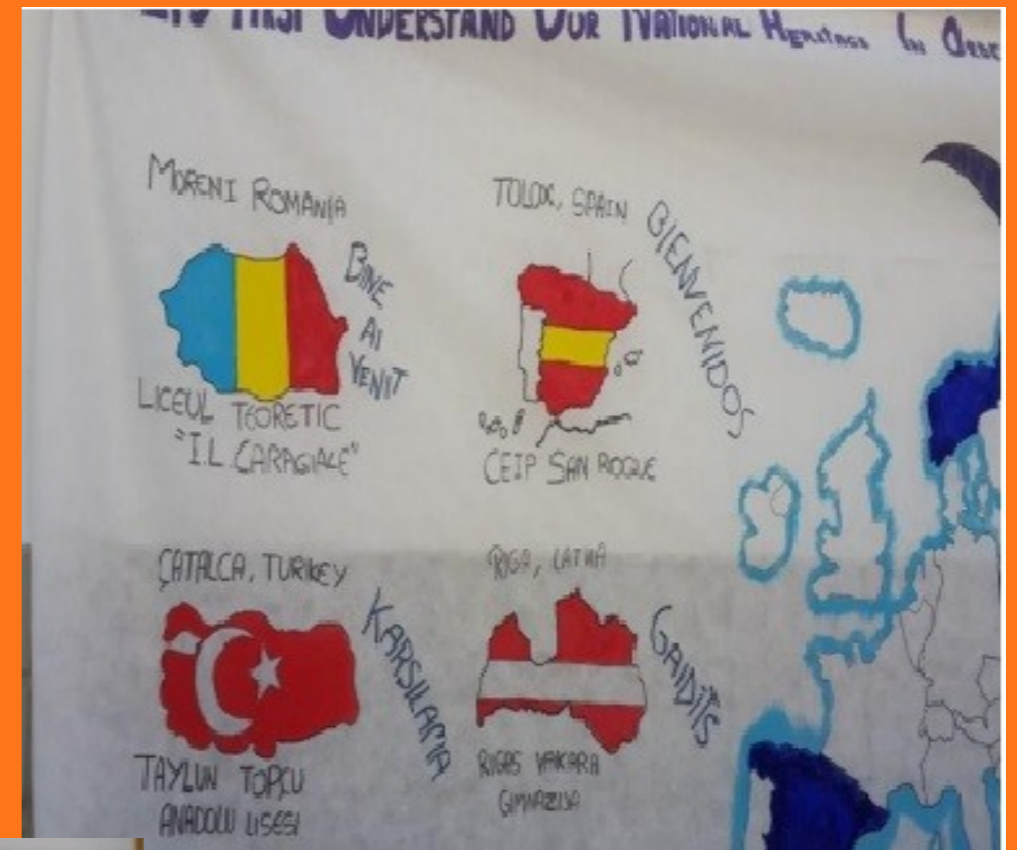 FIRST UNDERSTAND OUR NATIONAL HERITAGE IN
MORENI ROMANIA
BINE
AI
VENIT
LICEUL TEORETIC
"I.L. CARAGIALE"
TOLOX, SPAIN
BIENVENIDOS
CEIP SAN ROQUE
ÇATALCA, TURKEY
KARSILAMA
TAYLUN TOPÇU
ANADOLU LISESI
RIGA, LATVIA
GAIDĪTS
RIGAS VAKARA
GIMNAZIJA